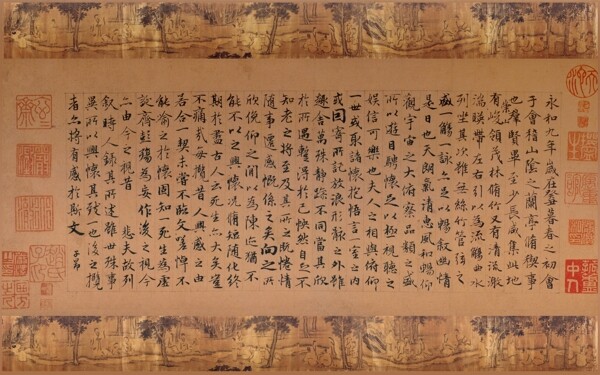 永和九年歲在癸丑暮春之初會
于會稽山陰之蘭亭脩禊事
也群賢畢至少長咸集此地
有崇山峻領茂林脩竹又有清流激
湍暎帶左右引以為流觴曲水
列坐其次雖無絲竹管弦之
盛一觴一詠亦足以暢敘幽情
是日也天朗氣清惠風和暢仰
觀宇宙之大俯察品類之盛
所以遊目騁懷足以極視聽之
娛信可樂也夫人之相與俯仰
一世或取諸懷抱悟言一室之內
或因寄所託放浪形骸之外雖
趣舍萬殊靜躁不同當其欣
於所遇暫得於己怏然自足不
知老之將至及其所之既惓情
隨事遷感慨係之矣向之所
欣俛仰之間以為陳迹猶不
能不以之興懷況脩短隨化終
期於盡古人云死生亦大矣豈
不痛哉每攬昔人興感之由
若合一契未嘗不臨文嗟悼不
能喻之於懷固知一死生為虛
誕齊彭殤為妄作後之視今
亦由今之視昔 悲夫故列
敘時人錄其所述雖世殊事
異所以興懷其致一也後之攬
者亦將有感於斯文
子昂